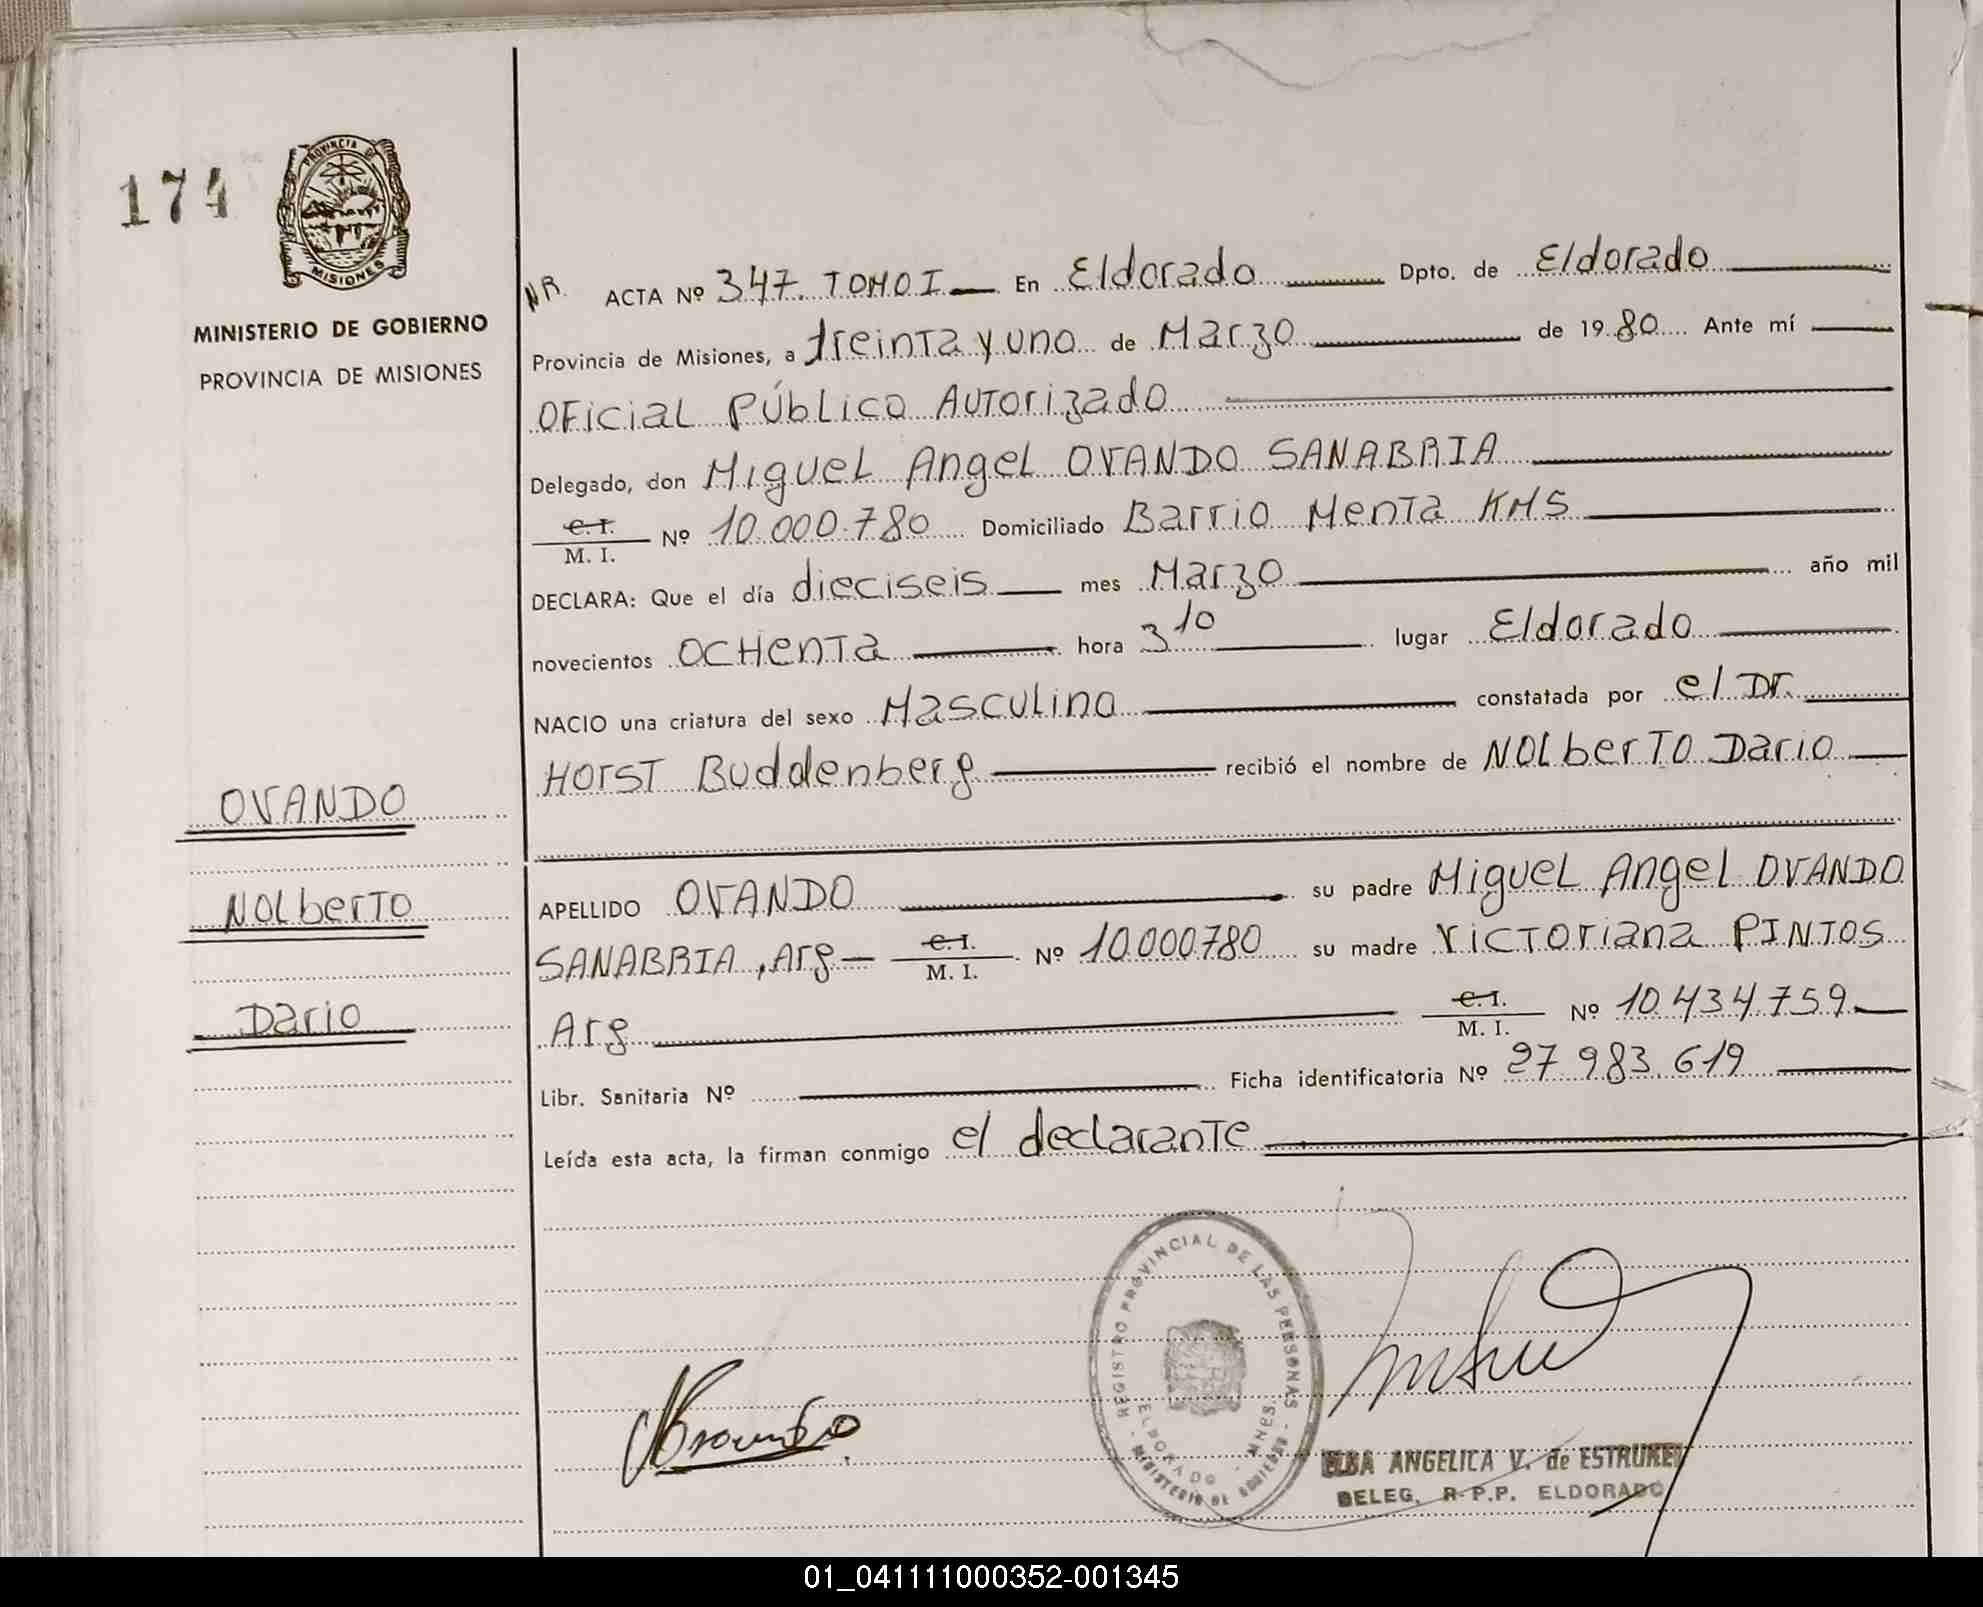 174
PROVINCIA DE
MISIONES
MINISTERIO DE GOBIERNO
PROVINCIA DE MISIONES
NR. ACTA Nº 347. TOMO I — En Eldorado Dpto. de Eldorado
Provincia de Misiones, a treinta y uno de Marzo de 1980 Ante mí
Oficial Público Autorizado
Delegado, don Miguel Angel OVANDO SANABRIA
C.I.
M. I. Nº 10.000.780 Domiciliado Barrio Menta KM5
DECLARA: Que el día dieciseis mes Marzo año mil
novecientos OCHENTA hora 3 10 lugar Eldorado
NACIO una criatura del sexo Masculino constatada por el Dr.
HORST Buddenberg recibió el nombre de NOLBERTO Dario
APELLIDO OVANDO su padre Miguel Angel OVANDO
SANABRIA, Arg— C.I.
M. I. Nº 10.000780 su madre Victoriana PINTOS
Arg C.I.
M. I. Nº 10.434.759
Libr. Sanitaria Nº Ficha identificatoria Nº 27 983.619
Leída esta acta, la firman conmigo el declarante
OVANDO
NOLBERTO
Dario
REGISTRO PROVINCIAL DE LAS PERSONAS
ELDORADO - MNES.
MINISTERIO DE GOBIERNO
ELBA ANGELICA V. de ESTRUKEL
DELEG. R.P.P. ELDORADO
01_041111000352-001345